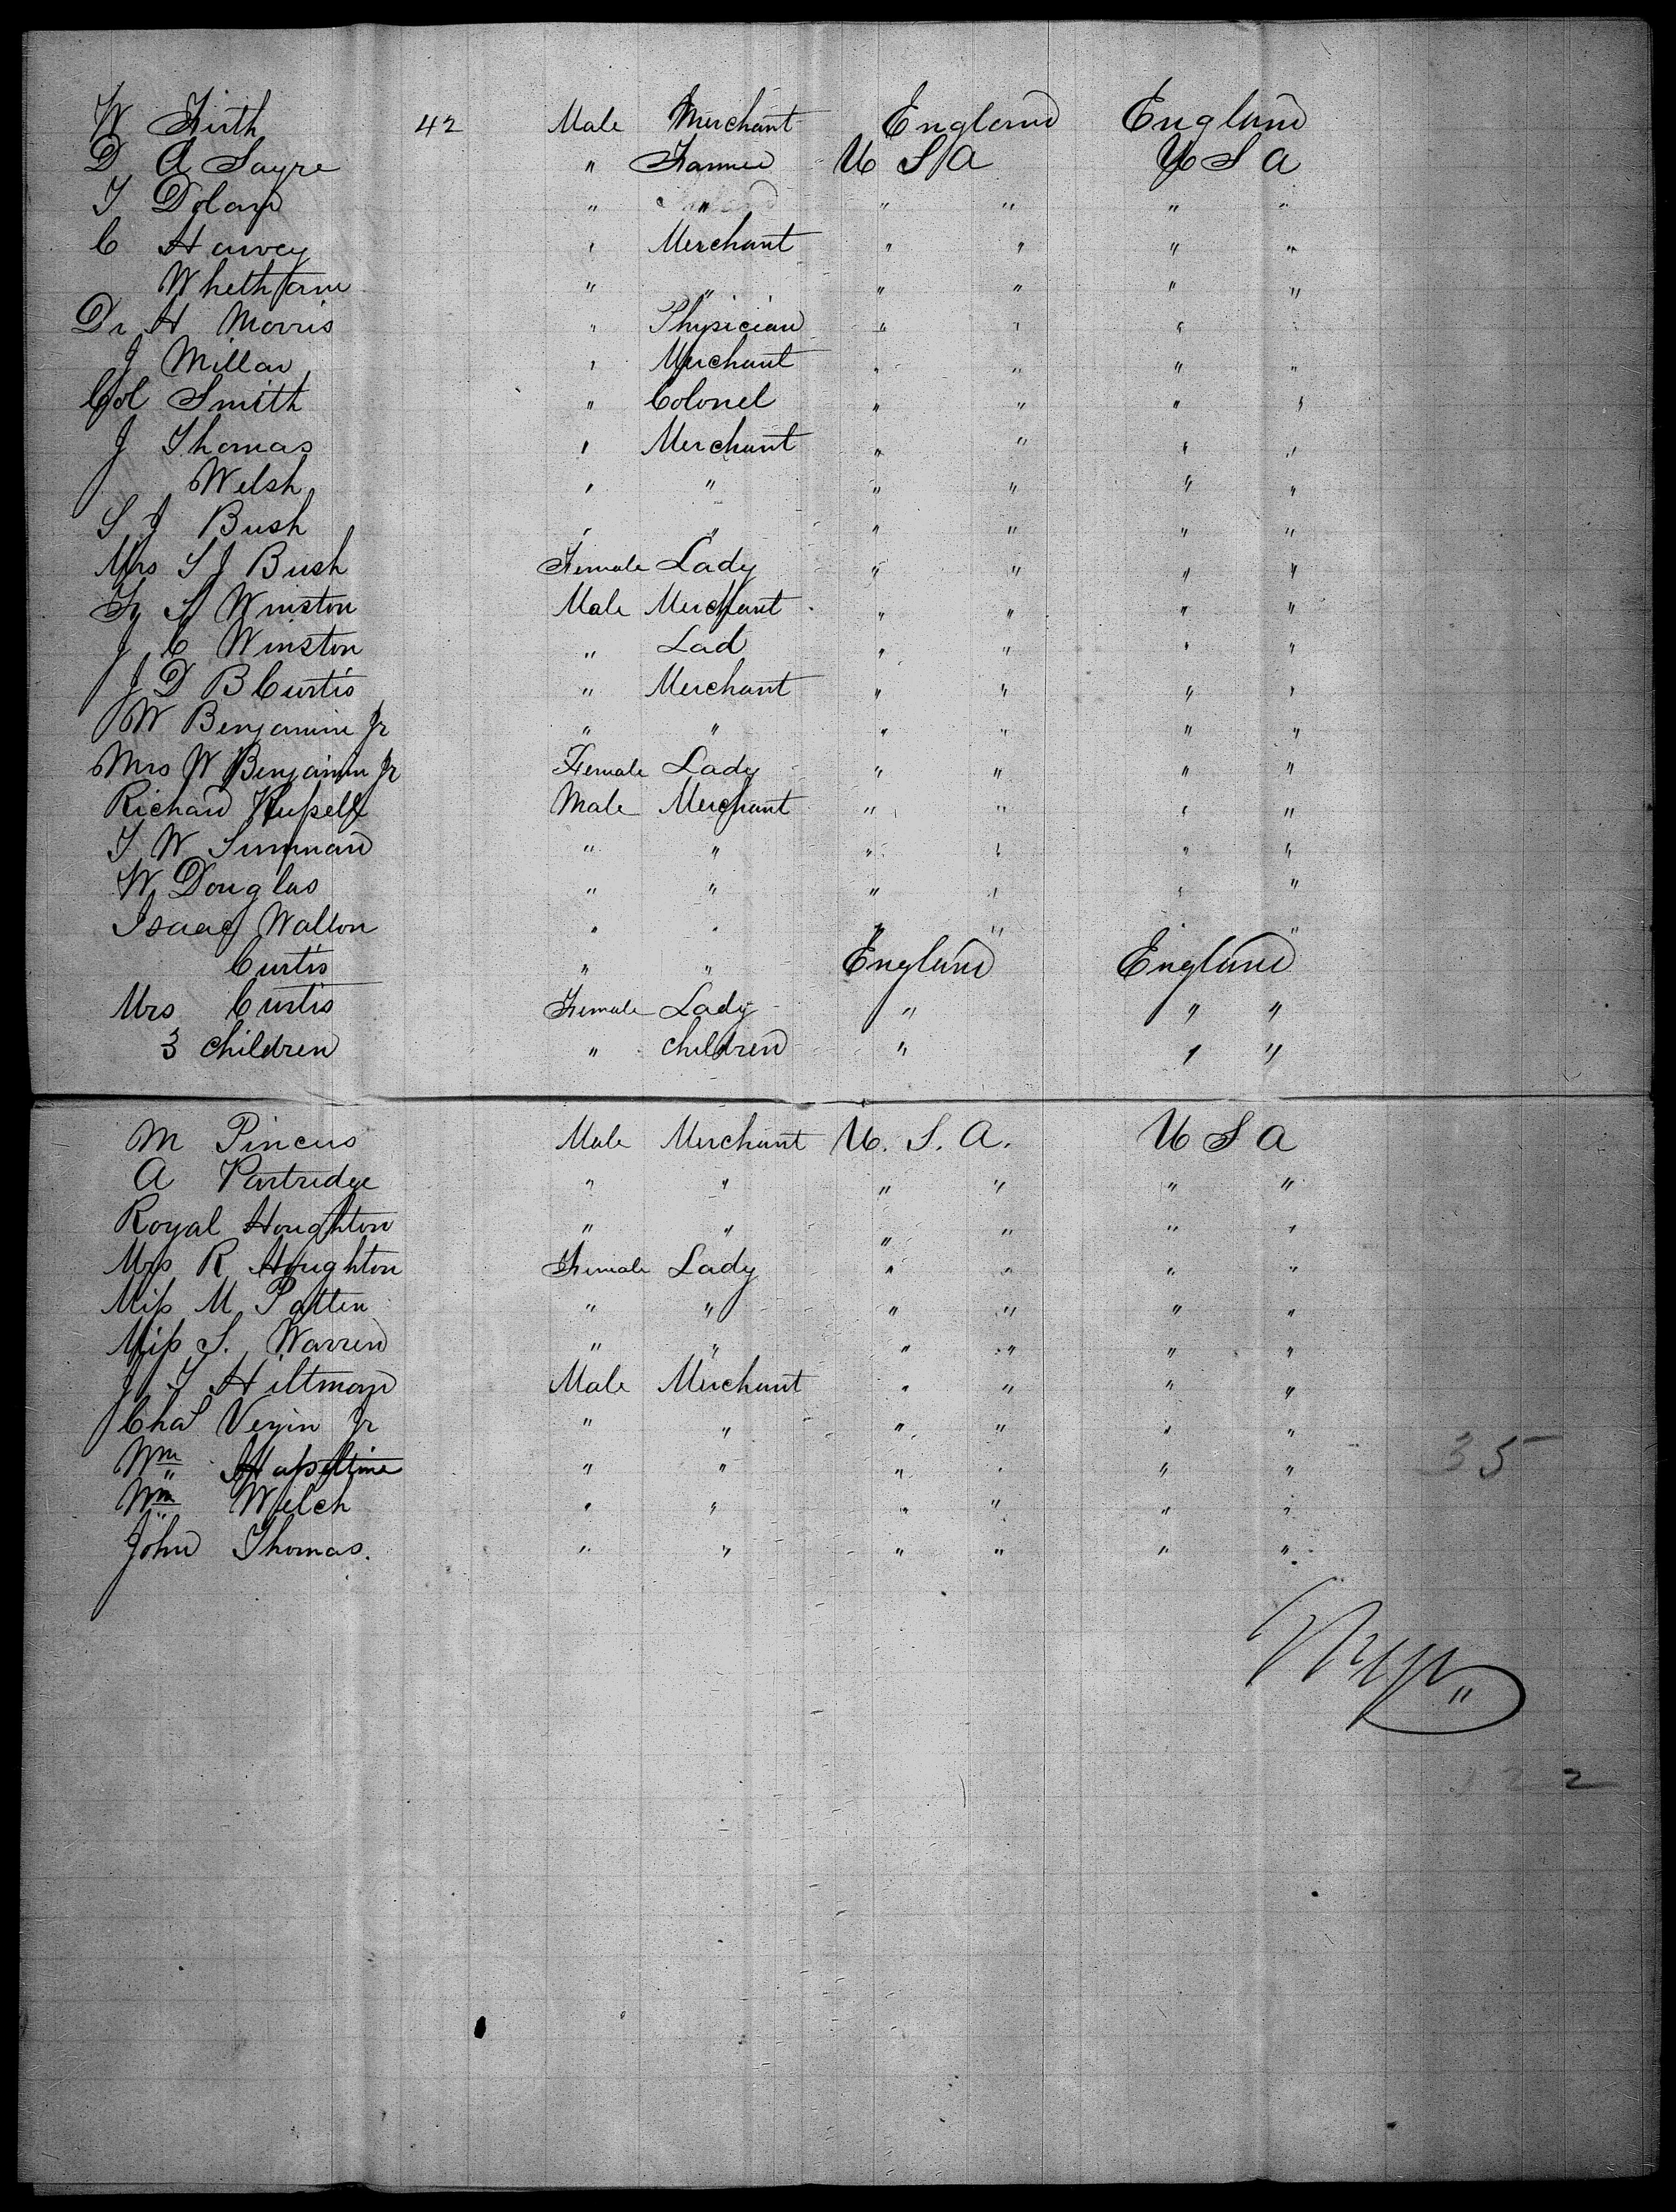 W Firth 42 Male Merchant England England
D A Sayre " Farmer U S A U S A
T Dolan " " " " " "
C Harvey " Merchant " " " "
Whetham " " " " " "
Dr H Morris " Physician " " " "
J Millar " Merchant " " " "
Col Smith " Colonel " " " "
J Thomas " Merchant " " " "
Welsh " " " " " "
S J Bush " " " " " "
Mrs S J Bush Female Lady " " " "
F S Winston Male Merchant " " " "
J C Winston " Lad " " " "
J D B Curtis " Merchant " " " "
W Benjamine Jr " " " " " "
Mrs W Benjamin Jr Female Lady " " " "
Richard Russell Male Merchant " " " "
T W " " " " " "
W Douglas " " " " " "
Isaac Walton " " " " " "
Curtis " " England England
Mrs Curtis Female Lady " " "
3 Children " Children " " "
M Pincus Male Merchant U. S. A. U S A
A Partridge " " " " " "
Royal Houghton " " " " " "
Mrs R Houghton Female Lady " " " "
Miss M Patten " " " " " "
Miss S. Warren " " " " " "
J T Hiltman Male Merchant " " " "
Chas Vezin Jr " " " " " "
Wm Haseltine " " " " " " 35
Wm Welch " " " " " "
John Thomas. " " " " " "
122